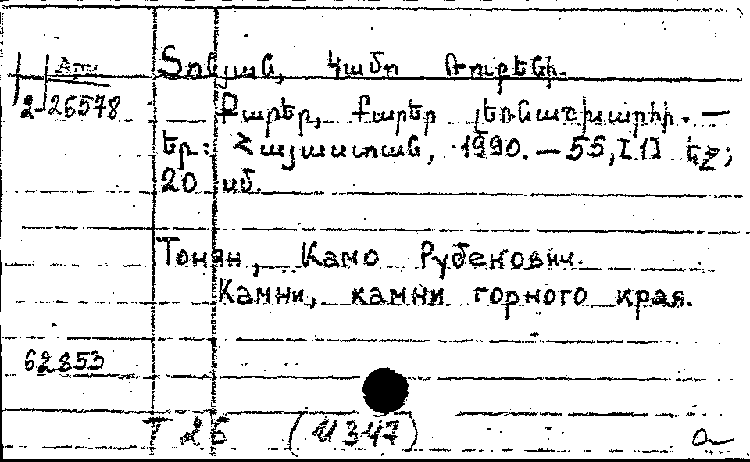 Տոնյան, Կամո Ռուբենի.
2-26578
Քարեր, քարեր լեռնաշխարհի. —
Եր.: Հայաստան, 1990. — 55, [1] էջ;
20 սմ.
Тонян, Камо Рубенович.
Камни, камни горного края.
62853
Т 26 (4347)